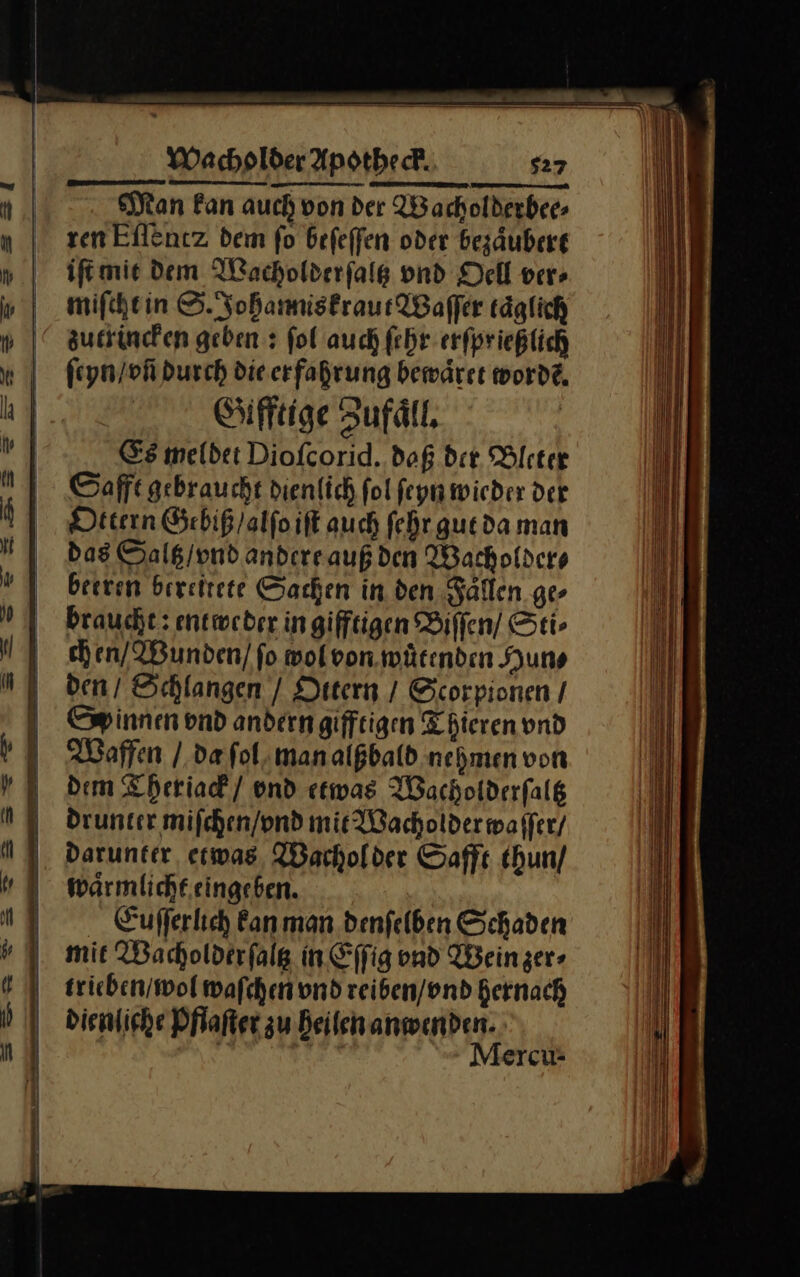 Wacholder Apotheck. 527
Man kan auch von der Wacholderbee⸗
ren Eſſentz dem ſo beſeſſen oder bezaͤubert
iſt mit dem Wacholderſaltz vnd Oell ver⸗
miſcht in S. Johanniskraut Waſſer taͤglich
zutrincken geben : ſol auch ſehr erſprießlich
ſeyn/vñ durch die erfahrung bewaͤret wordẽ.
Gifftige Zufaͤll.
Es meldet Dioſcorid. daß der Bleter
Safft gebraucht dienlich ſol ſeyn wieder der
Ottern Gebiß/alſo iſt auch ſehr gut da man
das Saltz/vnd andere auß den Wacholder⸗
beeren bereitete Sachen in den Faͤllen ge⸗
braucht : entweder in gifftigen Biſſen/ Sti⸗
chen/Wunden/ ſo wol von wuͤtenden Hun⸗
den / Schlangen / Ottern / Scorpionen /
Spinnen vnd andern gifftigen Thieren vnd
Waffen / da ſol man alßbald nehmen von
dem Theriack / vnd etwas Wacholderſaltz
drunter miſchen/vnd mit Wacholderwaſſer/
darunter etwas Wacholder Safft thun/
waͤrmlicht eingeben.
Euſſerlich kan man denſelben Schaden
mit Wacholderſaltz in Eſſig vnd Wein zer⸗
trieben/wol waſchen vnd reiben/vnd hernach
dienliche Pflaſter zu heilen anwenden.
Mercu-